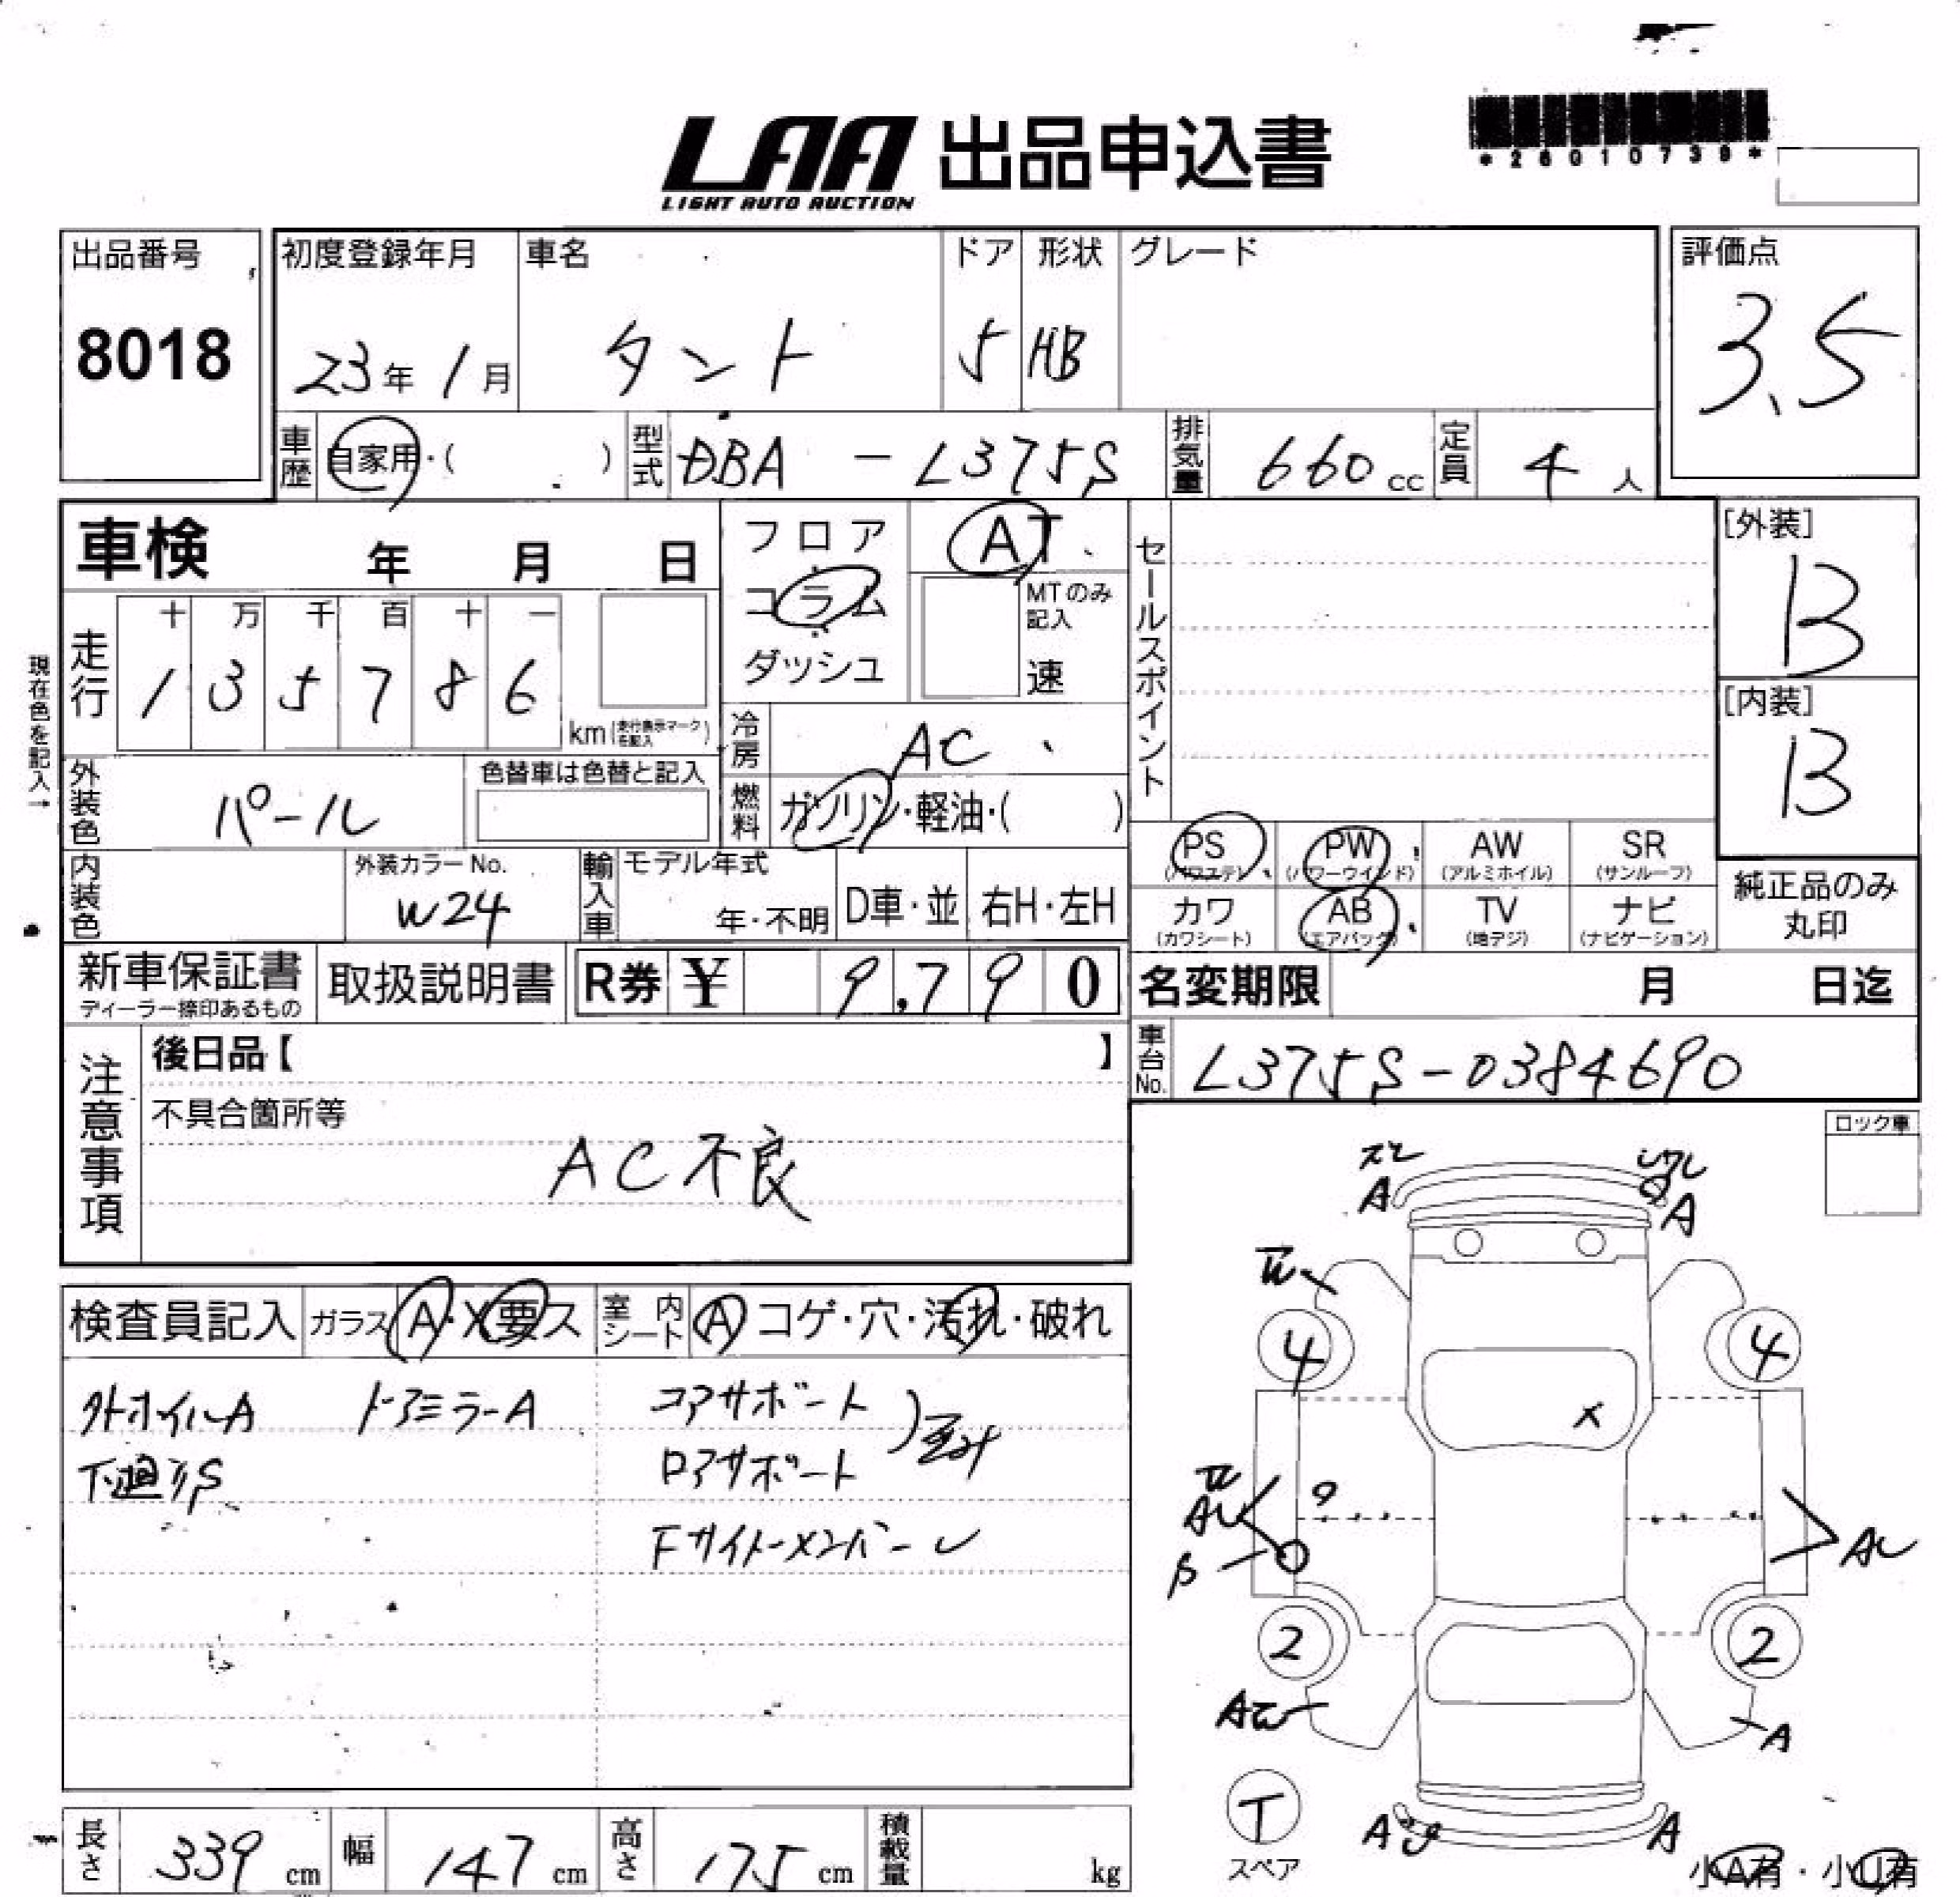 LAA 出品申込書
LIGHT AUTO AUCTION
*26010739*
出品番号
8018
初度登録年月
23年 1月
車名
タント
ドア
5
形状
HB
グレード
評価点
3.5
車歴
自家用・( )
型式
DBA - L375S
排気量
660 cc
定員
4 人
車検 年 月 日
フロア
コラム
ダッシュ
AT
MTのみ記入
速
セールスポイント
[外装]
B
[内装]
B
現在色を記入→
走行
十 万 千 百 十 一
1 3 5 7 8 6
km(走行表示マークを記入)
冷房
AC
外装色
パール
色替車は色替と記入
燃料
ガソリン・軽油・( )
PS (パワステ)
PW (パワーウインド)
AW (アルミホイル)
SR (サンルーフ)
カワ (カワシート)
AB (エアバック)
TV (地デジ)
ナビ (ナビゲーション)
純正品のみ丸印
内装色
外装カラーNo.
W24
輸入車
モデル年式
年・不明
D車・並
右H・左H
新車保証書
ディーラー捺印あるもの
取扱説明書
R券 ¥ 9,790
名変期限 月 日迄
車台No.
L375S-0384690
注意事項
後日品【 】
不具合箇所等
AC不良
ロック車
検査員記入
ガラス A・X要ス
室内シート A コゲ・穴・汚れ・破れ
外ホイルA ドアミラーA
下廻りS
コアサポート
ロアサポート
FサイドメンバーU
A
A
4
4
X
AU
AU
2
2
A
T
スペア
A
A
小A有・小U有
長さ 339 cm
幅 147 cm
高さ 175 cm
積載量 kg